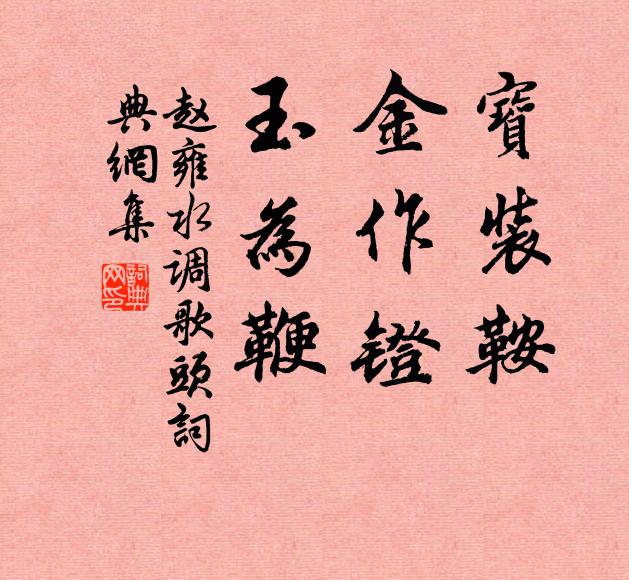 寶裝鞍
金作鐙
玉為鞭
赵雍水调歌頭詞
典網集
詞典網印